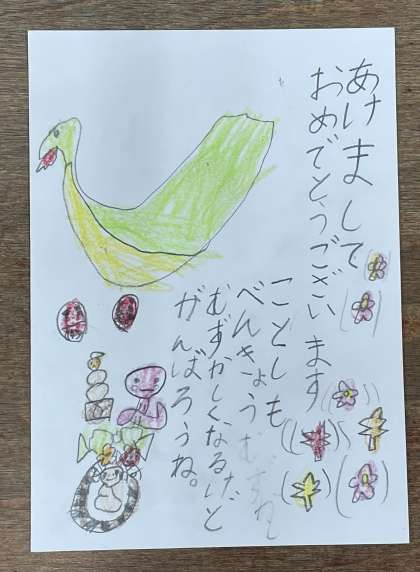 あけまして
おめでとうございます
ことしも
べんきょう
むずかしくなるけど
がんばろうね。